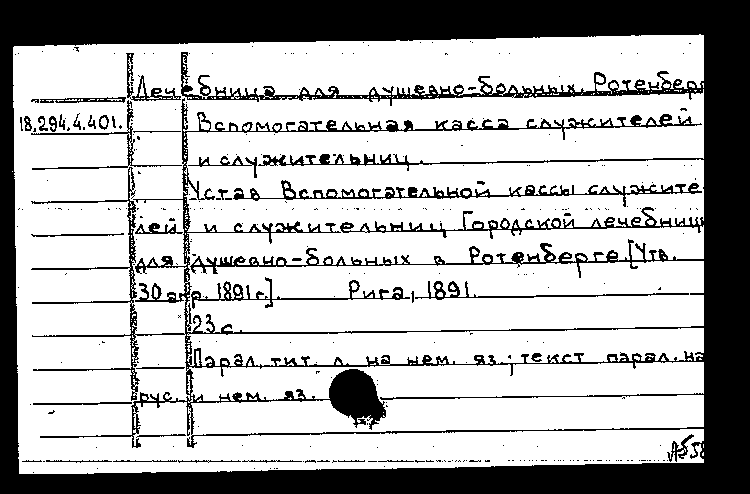 Лечебница для душевно-больных. Ротенберг
18.294.4.401. Вспомогательная касса служителей
и служительниц.
Устав Вспомогательной кассы служите
лей и служительниц Городской лечебниц
для душевно-больных в Ротенберге. [Утв.
30 апр. 1891 г.]. Рига, 1891.
23 с.
Парал. тит. л. на нем. яз.; текст парал. на
рус. и нем. яз.